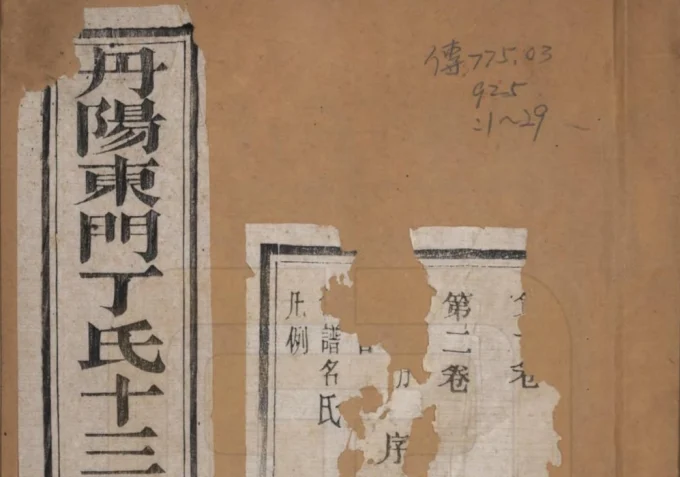 丹陽東門丁氏十三
傳 775.03
925
:1~29
卷
第二卷
序
譜名氏
凡例